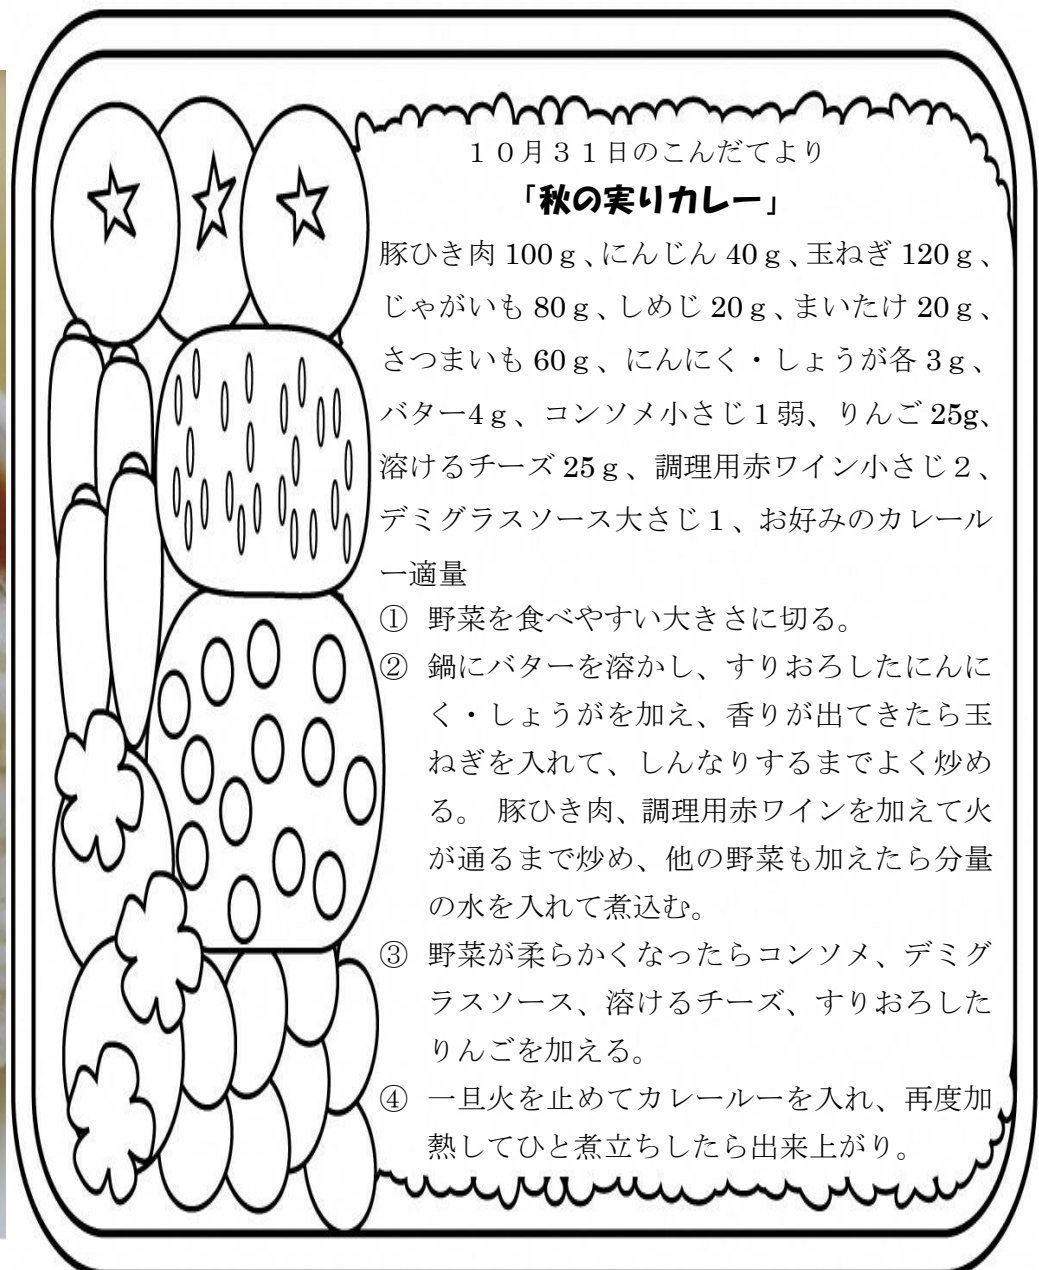 １０月３１日のこんだてより
「秋の実りカレー」
豚ひき肉 100ｇ、にんじん 40ｇ、玉ねぎ 120ｇ、
じゃがいも 80ｇ、しめじ 20ｇ、まいたけ 20ｇ、
さつまいも 60ｇ、にんにく・しょうが各 3ｇ、
バター4ｇ、コンソメ小さじ１弱、りんご 25g、
溶けるチーズ 25ｇ、調理用赤ワイン小さじ２、
デミグラスソース大さじ１、お好みのカレール
ー適量
① 野菜を食べやすい大きさに切る。
② 鍋にバターを溶かし、すりおろしたにんに
く・しょうがを加え、香りが出てきたら玉
ねぎを入れて、しんなりするまでよく炒め
る。 豚ひき肉、調理用赤ワインを加えて火
が通るまで炒め、他の野菜も加えたら分量
の水を入れて煮込む。
③ 野菜が柔らかくなったらコンソメ、デミグ
ラスソース、溶けるチーズ、すりおろした
りんごを加える。
④ 一旦火を止めてカレールーを入れ、再度加
熱してひと煮立ちしたら出来上がり。